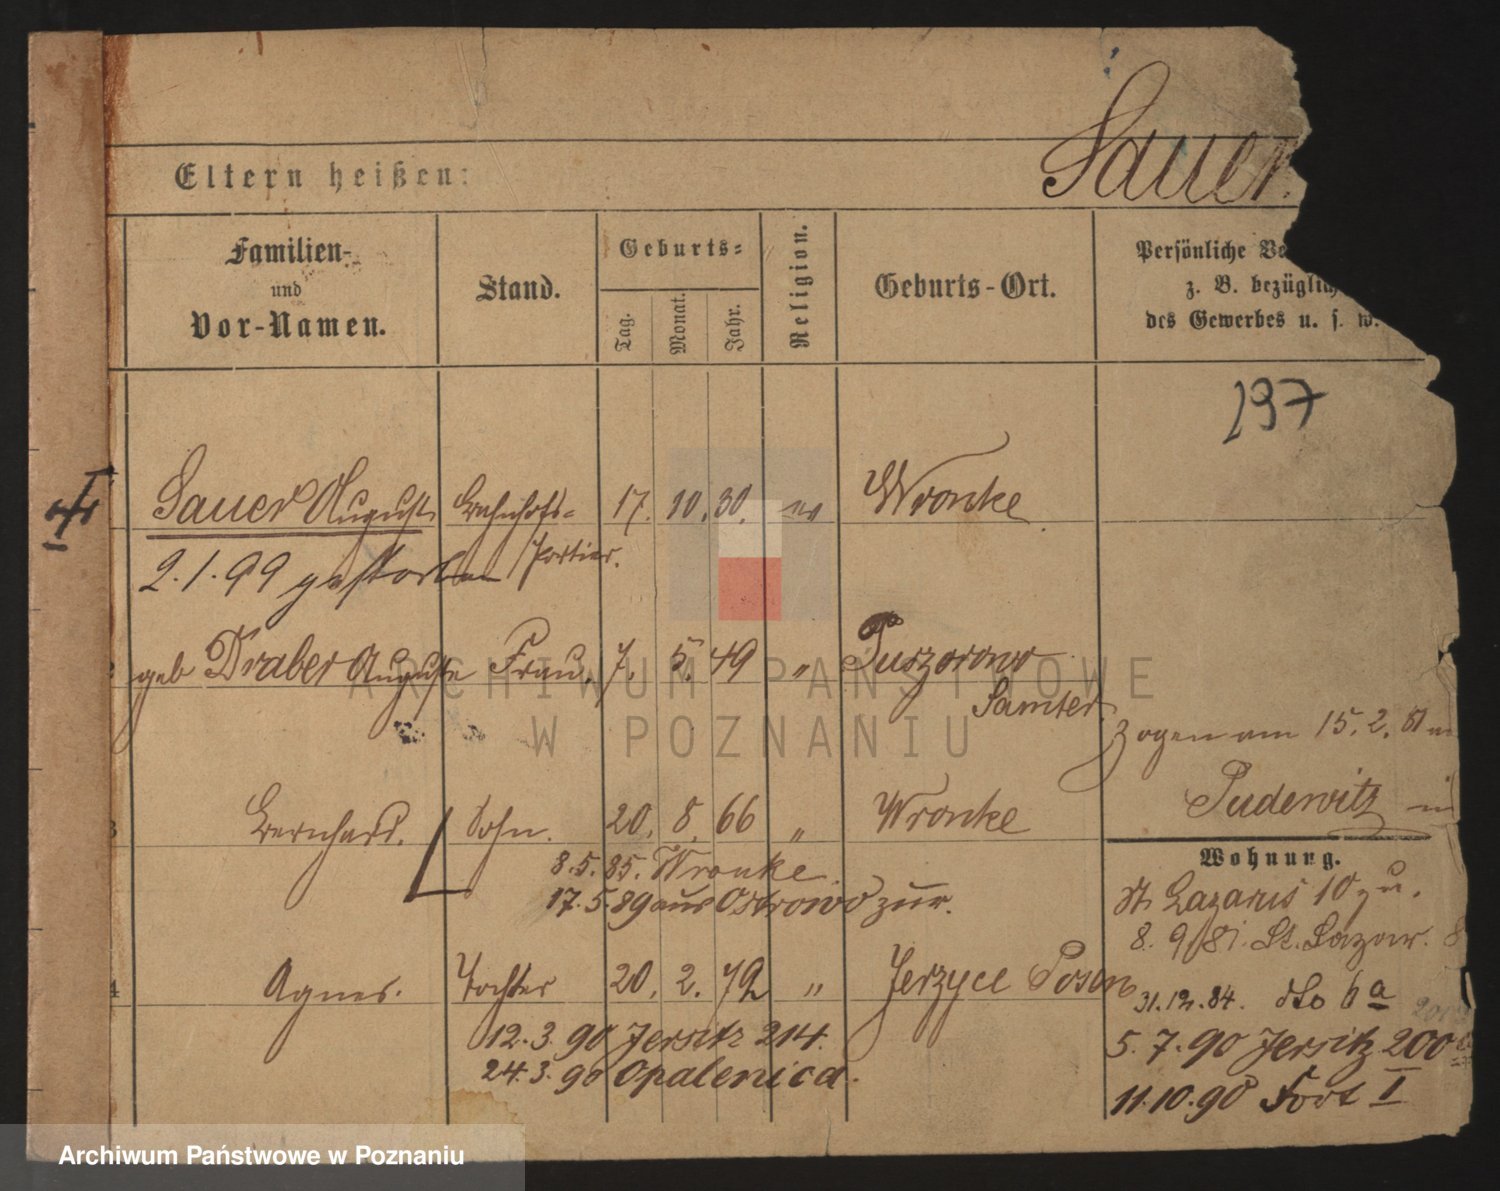 Sauer
Eltern heißen:
Familien-
und
Vor-Namen.
Stand.
Geburts-
Tag.
Monat.
Jahr.
Religion.
Geburts-Ort.
Persönliche
z. B. bezüglich
des Gewerbes u. s. w.
197
Sauer August Bahnhofs- 17. 10. 30. ev Wronke
Portier.
2.1.99 gestorben
geb Draber Auguste Frau. 7. 5. 49 "
Samter.
zogen am 15. 2.
Pudewitz
3 Bernhard. Sohn. 20. 8. 66 " Wronke
8.5.85. Wronke.
17.5.89 aus Ostrowo zur.
Wohnung.
St. Lazarus 10 zu.
8. 9. 81. St. Lazar. 8
4 Agnes. Tochter 20. 2. 72 " Jerzyce Posen
31.12.84. dto 6a
12.3.90 Jersitz 214.
5. 7. 90 Jersitz 200
24.3.90 Opalenica.
11.10.90 Fort I
ARCHIWUM PAŃSTWOWE
W POZNANIU
Archiwum Państwowe w Poznaniu